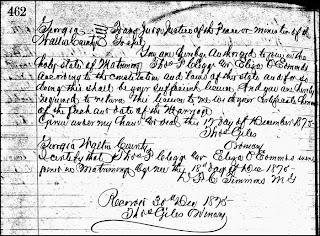 462
Georgia To any Judge Justice of the Peace or minister of the
Walton County Gospel
You are hereby Authorized to join in the
holy state of Matrimony Thos P. Clegg & Eliza O Edmonds
According to the Constitution and laws of this state and for so
doing this shall be your sufficient license. And you are hereby
required to return this license to me with your Certificate hereon
of the fact and date of the Marriage
Given under my hand & seal this 17 day of December 1875
Thos Giles
Georgia Walton County Ordinary
I certify that Thos P Clegg & Eliza O Edmonds were
joined in Matrimony by me the 18th day of Dec 1875
Simmons M G
Recorded 30th Dec 1875
Thos Giles Ordinary